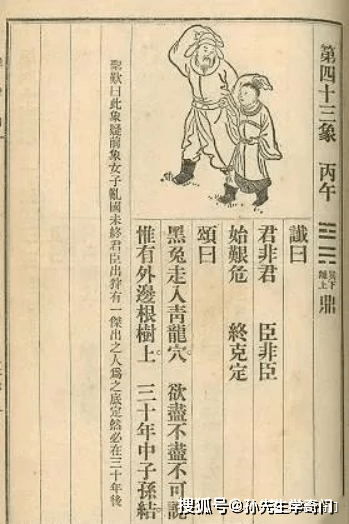 第四十三象 丙午 巽下離上 鼎
讖曰
君非君 臣非臣
始艱危 終克定
頌曰
黑兔走入青龍穴 欲盡不盡不可說
惟有外邊根樹上 三十年中子孫結
聖歎曰此象疑前象女子亂國未終君臣出狩有一傑出之人爲之底定然必在三十年後
搜狐号@孙先生学奇门